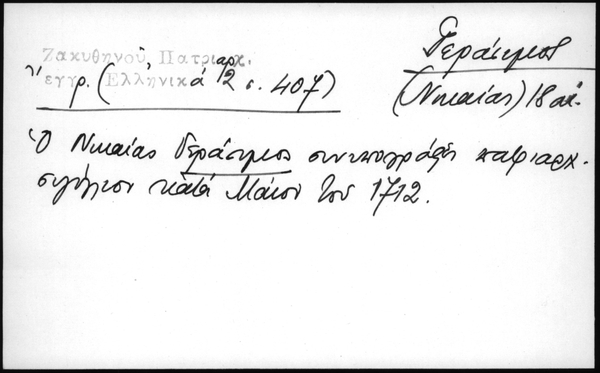 Γεράσιμος
(Νικαίας) 18 αι.
Ζακυθηνού, Πατριαρχ.
εγγρ. (Ελληνικά 2 σ. 407)
Ὁ Νικαίας Γεράσιμος συνυπογράφει πατριαρχ.
σιγίλλιον κατά Μάιον του 1712.